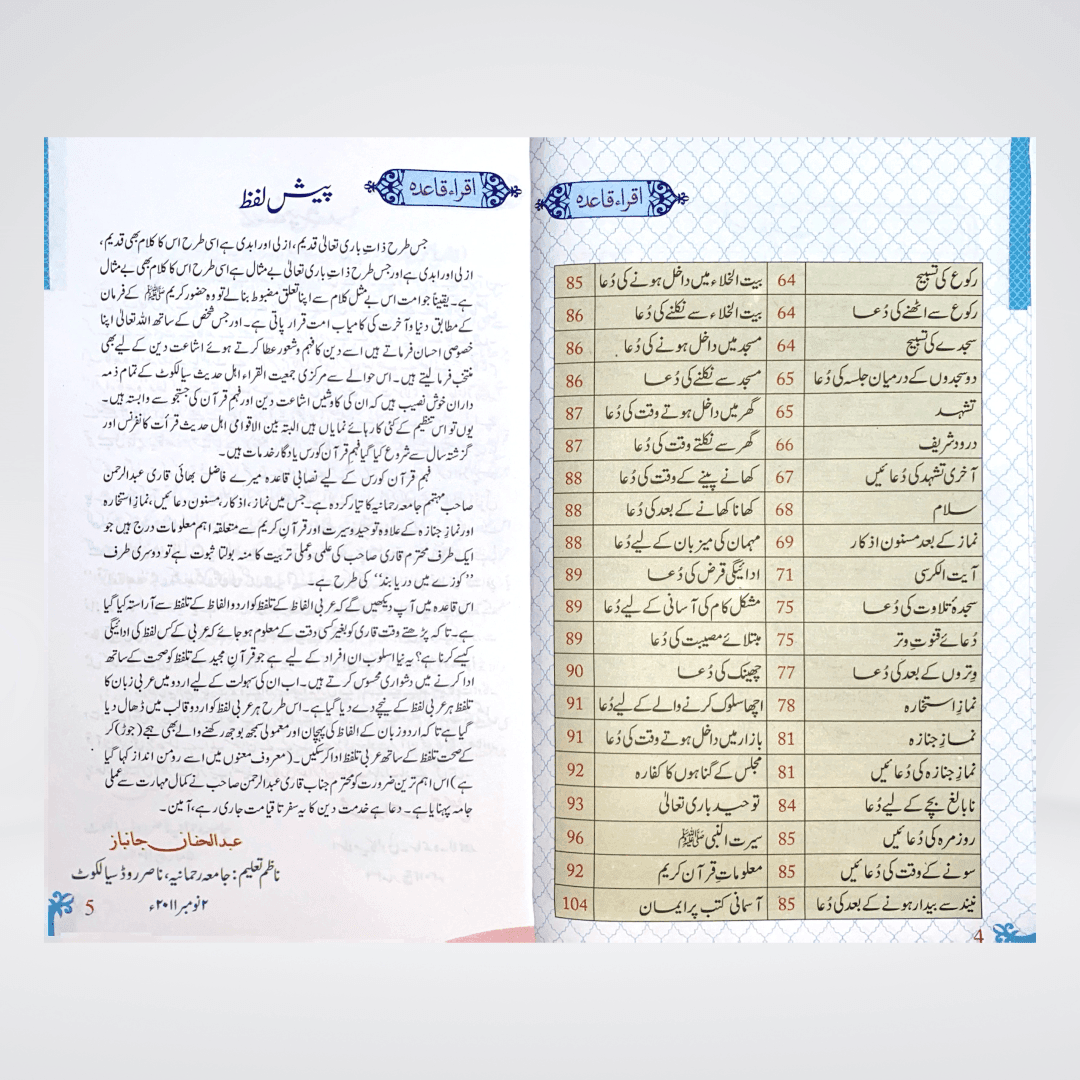 اقراء قاعدہ
رکوع کی تسبیح 64 بیت الخلاء میں داخل ہونے کی دُعا 85
رکوع سے اٹھنے کی دُعا 64 بیت الخلاء سے نکلنے کی دُعا 86
سجدے کی تسبیح 64 مسجد میں داخل ہونے کی دُعا 86
دو سجدوں کے درمیان جلسہ کی دُعا 65 مسجد سے نکلنے کی دُعا 86
تشہد 65 گھر میں داخل ہوتے وقت کی دُعا 87
درود شریف 66 گھر سے نکلتے وقت کی دُعا 87
آخری تشہد کی دُعائیں 67 کھانے پینے کے وقت کی دُعا 88
سلام 68 کھانا کھانے کے بعد کی دُعا 88
نماز کے بعد مسنون اذکار 69 مہمان کی میزبان کے لیے دُعا 88
آیت الکرسی 71 ادائیگی قرض کی دُعا 89
سجدۂ تلاوت کی دُعا 75 مشکل کام کی آسانی کے لیے دُعا 89
دُعائے قنوتِ وتر 75 مبتلائے مصیبت کی دُعا 89
وِتروں کے بعد کی دُعا 77 چھینک کی دُعا 90
نمازِ استخارہ 78 اچھا سلوک کرنے والے کے لیے دُعا 91
نمازِ جنازہ 81 بازار میں داخل ہوتے وقت کی دُعا 91
نمازِ جنازہ کی دُعائیں 81 مجلس کے گناہوں کا کفارہ 92
نابالغ بچے کے لیے دُعا 84 توحید باری تعالیٰ 93
روزمرہ کی دُعائیں 85 سیرت النبی ﷺ 96
سونے کے وقت کی دُعائیں 85 معلوماتِ قرآن کریم 92
نیند سے بیدار ہونے کے بعد کی دُعا 85 آسمانی کتب پر ایمان 104
4
اقراء قاعدہ
پیش لفظ
جس طرح ذاتِ باری تعالیٰ قدیم، ازلی اور ابدی ہے اسی طرح اس کا کلام بھی قدیم،
ازلی اور ابدی ہے اور جس طرح ذاتِ باری تعالیٰ بے مثال ہے اسی طرح اس کا کلام بھی بے مثال
ہے۔ یقیناً جو امت اس بے مثل کلام سے اپنا تعلق مضبوط بنا لے تو وہ حضور کریم ﷺ کے فرمان
کے مطابق دنیا و آخرت کی کامیاب امت قرار پاتی ہے۔ اور جس شخص کے ساتھ اللہ تعالیٰ اپنا
خصوصی احسان فرماتے ہیں اسے دین کا فہم و شعور عطا کرتے ہوئے اشاعت دین کے لیے بھی
منتخب فرما لیتے ہیں۔ اس حوالے سے مرکزی جمعیت القراء اہل حدیث سیالکوٹ کے تمام ذمہ
داران خوش نصیب ہیں کہ ان کی کاوشیں اشاعت دین اور فہمِ قرآن کی جستجو سے وابستہ ہیں۔
یوں تو اس تنظیم کے کئی کارہائے نمایاں ہیں البتہ بین الاقوامی اہل حدیث قرأت کانفرنس اور
گزشتہ سال سے شروع کیا گیا فہمِ قرآن کورس یادگار خدمات ہیں۔
فہمِ قرآن کورس کے لیے نصابی قاعدہ میرے فاضل بھائی قاری عبدالرحمن
صاحب مہتمم جامعہ رحمانیہ کا تیار کردہ ہے۔ جس میں نماز، اذکار، مسنون دعائیں، نمازِ استخارہ
اور نمازِ جنازہ کے علاوہ توحید و سیرت اور قرآن کریم سے متعلقہ اہم معلومات درج ہیں جو
ایک طرف محترم قاری صاحب کی علمی و عملی تربیت کا منہ بولتا ثبوت ہے تو دوسری طرف
’’کوزے میں دریا بند‘‘ کی طرح ہے۔
اس قاعدہ میں آپ دیکھیں گے کہ عربی الفاظ کے تلفظ کو اردو الفاظ کے تلفظ سے آراستہ کیا گیا
ہے۔ تا کہ پڑھتے وقت قاری کو بغیر کسی دقت کے معلوم ہو جائے کہ عربی کے کس لفظ کی ادائیگی
کیسے کرنا ہے؟ یہ نیا اسلوب ان افراد کے لیے ہے جو قرآنِ مجید کے تلفظ کو صحت کے ساتھ
ادا کرنے میں دشواری محسوس کرتے ہیں۔ اب ان کی سہولت کے لیے اردو میں عربی زبان کا
تلفظ ہر عربی لفظ کے نیچے دے دیا گیا ہے۔ اس طرح ہر عربی لفظ کو اردو قالب میں ڈھال دیا
گیا ہے تا کہ اردو زبان کے الفاظ کی پہچان اور معمولی سمجھ بوجھ رکھنے والے بھی ہجے (جوڑ) کر
کے صحت تلفظ کے ساتھ عربی تلفظ ادا کر سکیں۔ (معروف معنوں میں اسے رومن انداز کہا گیا
ہے) اس اہم ترین ضرورت کو محترم جناب قاری عبدالرحمن صاحب نے کمال مہارت سے عملی
جامہ پہنایا ہے۔ دعا ہے خدمت دین کا یہ سفر تا قیامت جاری رہے، آمین۔
عبدالحنان جانباز
ناظم تعلیم: جامعہ رحمانیہ، ناصر روڈ سیالکوٹ
۲ نومبر ۲۰۱۱ء
5